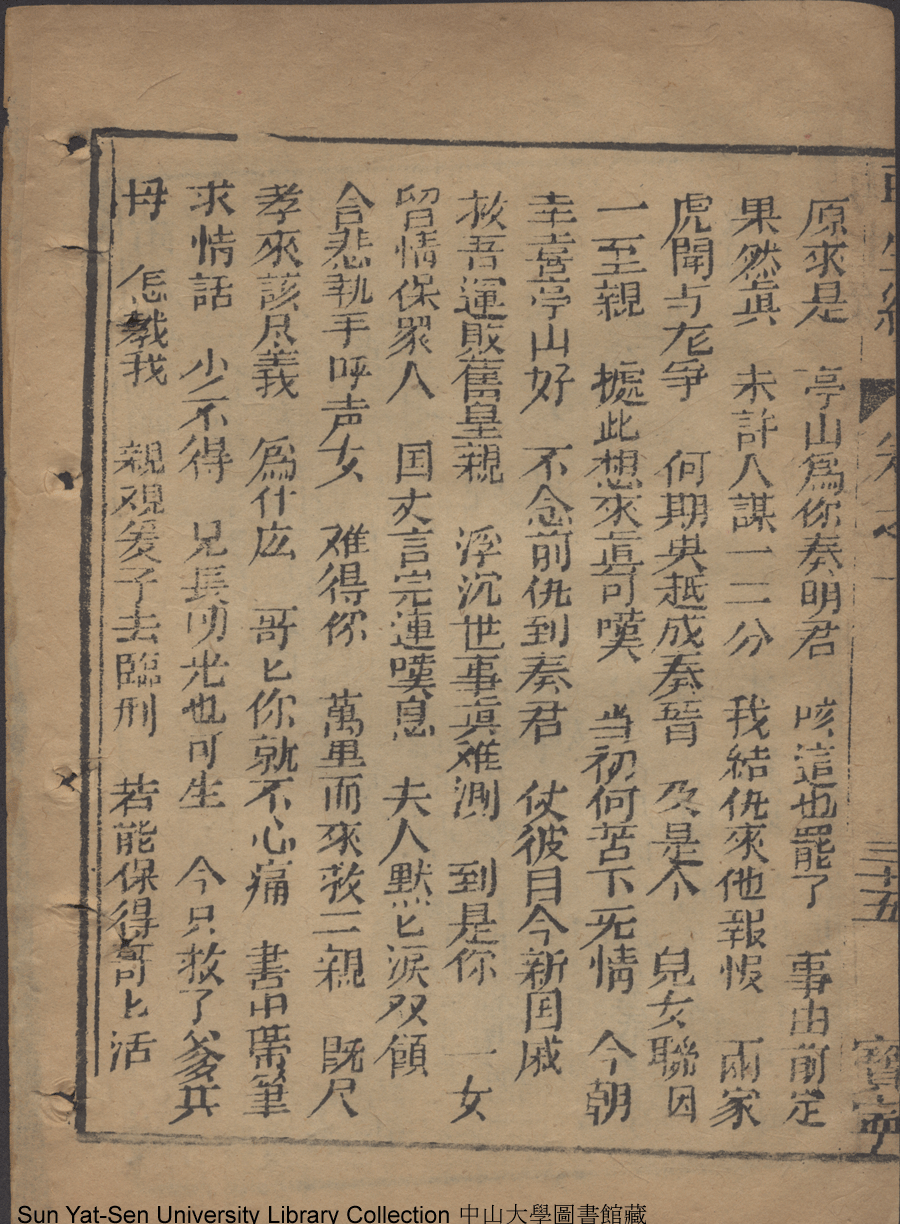 原來是　亭山爲你奏明君　咳這也罷了　事由前定
果然真　未許人謀一二分　我結仇來他報恨　兩家
虎鬧与尨爭　何期吳越成秦晉　及是个　兒女聯因
一至親　據此想來真可嘆　当初何苦下旡情　今朝
幸喜亭山好　不念前仇到奏君　仗彼目今新国戚
救吾運敗舊皇親　浮沉世事真难測　到是你　一女
留情保眾人　国丈言完連嘆息　夫人默匕淚双傾
含悲執手呼声女　难得你　萬里而來救二親　既尺
孝來該尽義　爲什庅　哥匕你就不心痛　書中帶筆
求情話　少不得　兄長叨光也可生　今只救了爹共
母　怎教我　親观爰子去臨刑　若能保得哥匕活
三十五
寶寧
Sun Yat-Sen University Library Collection 中山大學圖書館藏